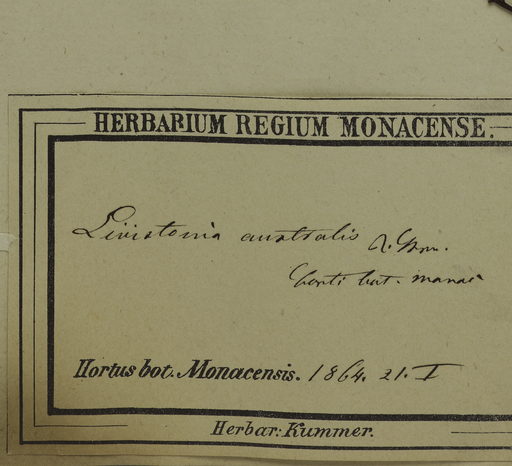 HERBARIUM REGIUM MONACENSE.
Livistonia australis
horti bot. monac
Hortus bot. Monacensis. 1864. 21. I
Herbar: Kummer.